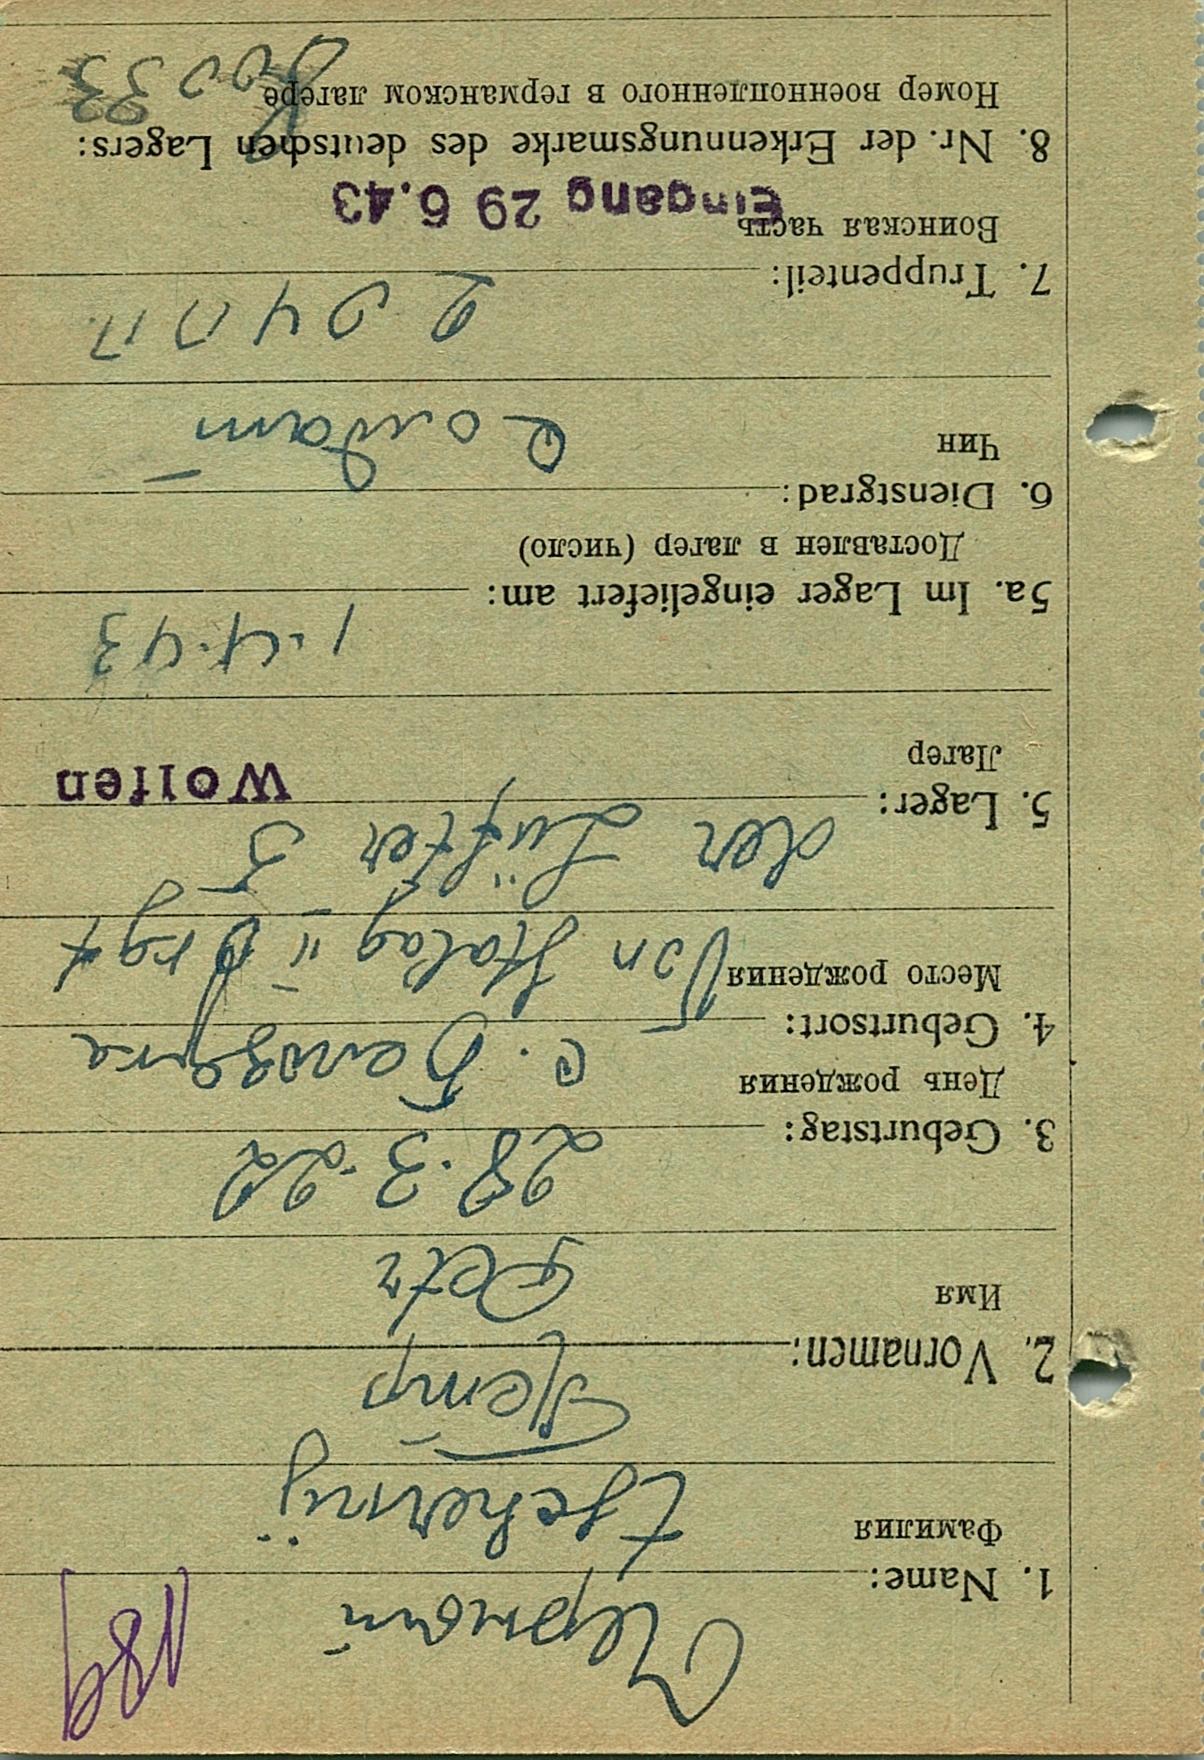 189
Черный
1. Name:
Фамилия
tschernij
Петр
2. Vornamen:
Имя
Petr
28.3.22
3. Geburtstag:
День рождения
4. Geburtsort:
Место рождения
Von Stalag
der Lüfter 5
5. Lager:
Лагер
Wolfen
1.4.43
5a. Im Lager eingeliefert am:
Доставлен в лагер (число)
6. Dienstgrad:
Чин
Солдат
7. Truppenteil:
Воинская часть
Eingang 29 6.43
8. Nr. der Erkennungsmarke des deutschen Lagers:
Номер военнопленного в германском лагере